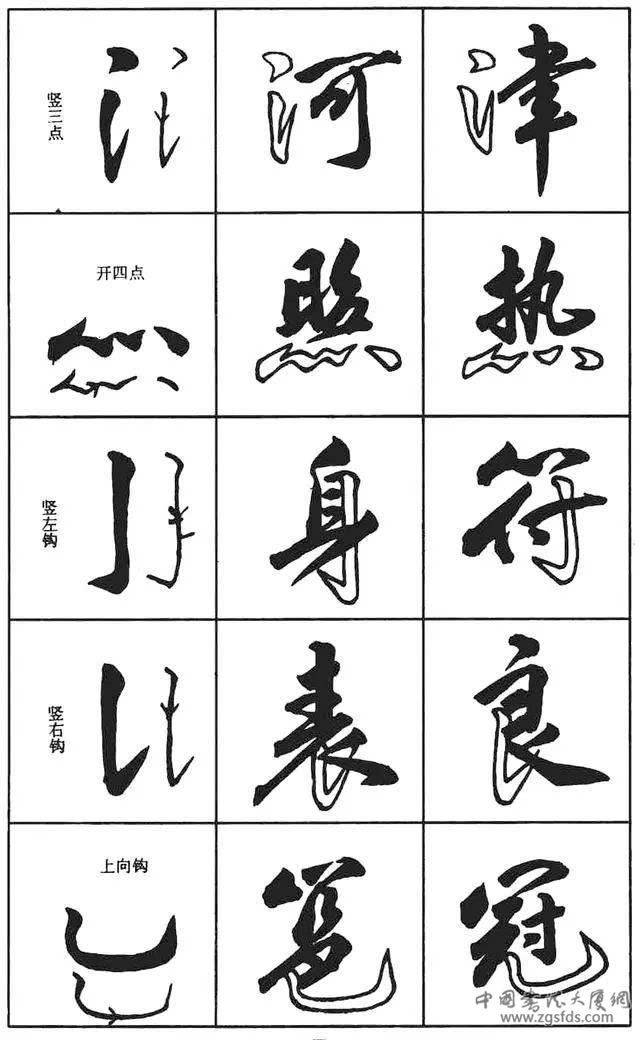 竖三点
河
津
开四点
照
热
竖左钩
身
符
竖右钩
表
良
上向钩
冠
中国书法大厦網
www.zgsfds.com